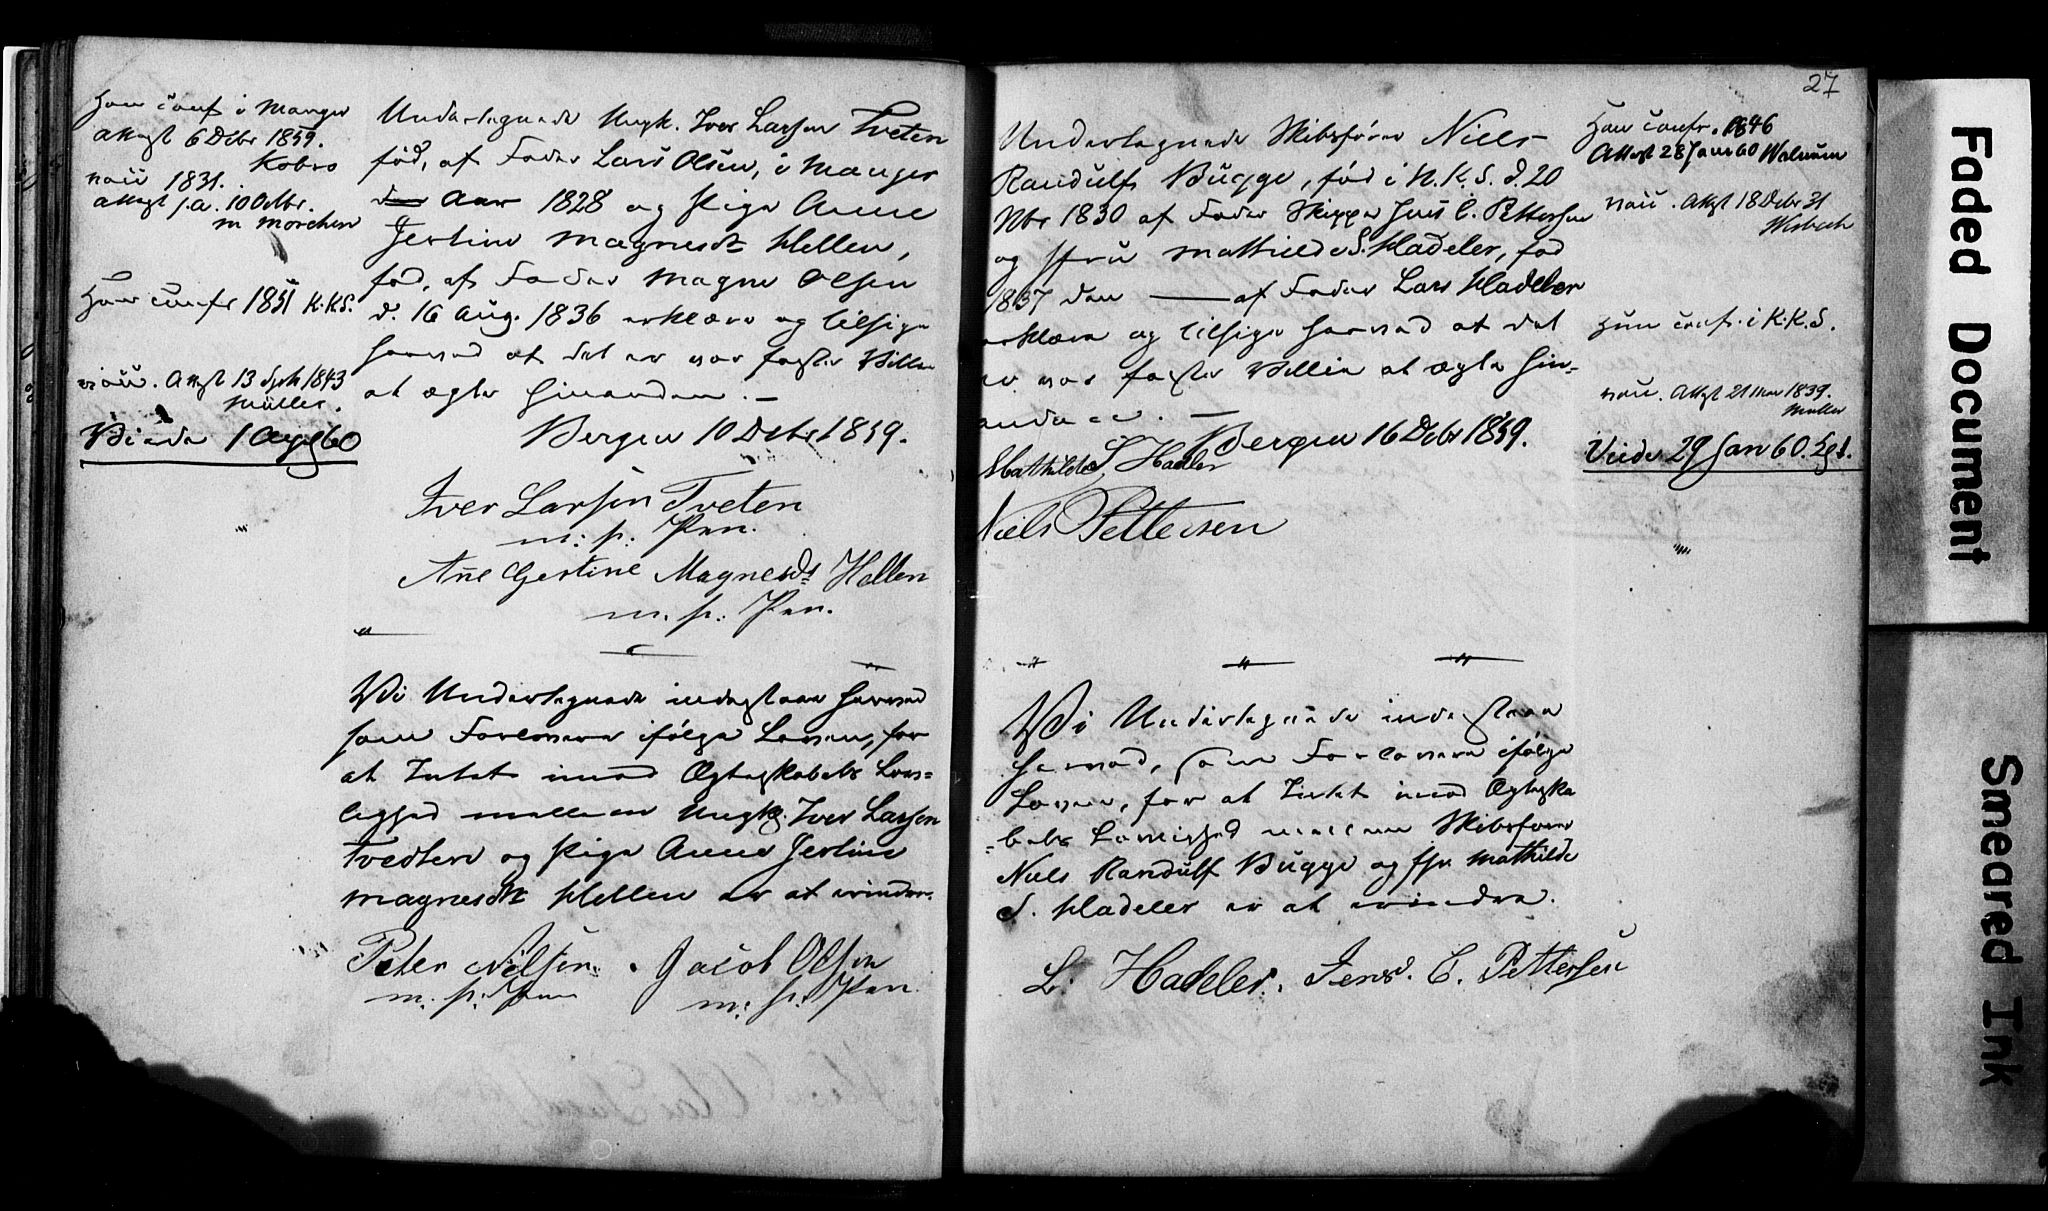 Han conf i Manger
Attest 6 Debr 1859.
Kobro
vacc 1831.
Attest s.a. 10 Octbr.
M Mørchen
Hun confr 1851 K.K.S.
vacc. Attst 13 Sptb 1843
Müller.
Viede 1 Aug 60
Undertegnede Ungk. Iver Larsen Tveten
fød, af Fader Lars Olsen, i Manger
Aar 1828 og Pige Anne
Jertine Magnesdtr Hellen,
fød, af Fader Magne Olsen
d. 16 Aug. 1836 erklære og tilsige
herved at det er vor faste Villie
at ægte hinanden. —
Bergen 10 Debr 1859.
Iver Larsen Tveten
m: p: Pen.
Ane Gertine Magnesds Hellen
m. p: Pen.
Vi Undertegnede indestaae herved
som Forlovere ifølge Loven, for
at Intet imod Ægteskabets Lov=
lighed mellem Ungk. Iver Larsen
Tvedten og Pige Anne Jertine
Magnesdtr Hellen er at erindre.
Peter Nilsen. Jacob Olsen
m. p. Pen m: p: Pen.
27
Undertegnede Skibsfører Niels
Randulf Bugge, fød i N.K.S. d. 20
Nbr 1830 af Fader Skipper Jens C. Pettersen
og Jfru Mathilde S. Hadeler, fød
1837 den — af Fader Lars Hadeler
erklære og tilsige herved at det
er vor faste Villie at ægte hin=
anden. —
Bergen 16 Debr 1859.
Mathilde S. Hadler
Niels Pettersen
Han confr. 1846
Attest 28 Janr 60 Walnum
vacc. Attst 18 Debr 31
Wisbech
Hun confr. i K.K.S.
vacc. Attst 21 Mai 1839.
Müller
Viede 29 Jan 60.
Vi Undertegnede indestaae
herved, som Forlovere ifølge
Loven, for at Intet imod Ægteska
=bets Lovlighed mellem Skibsfører
Niels Randulf Bugge og Jfr Mathilde
S. Hadeler er at erindre.
L. Hadeler. Jens. C. Pettersen
Faded Document
Smeared Ink